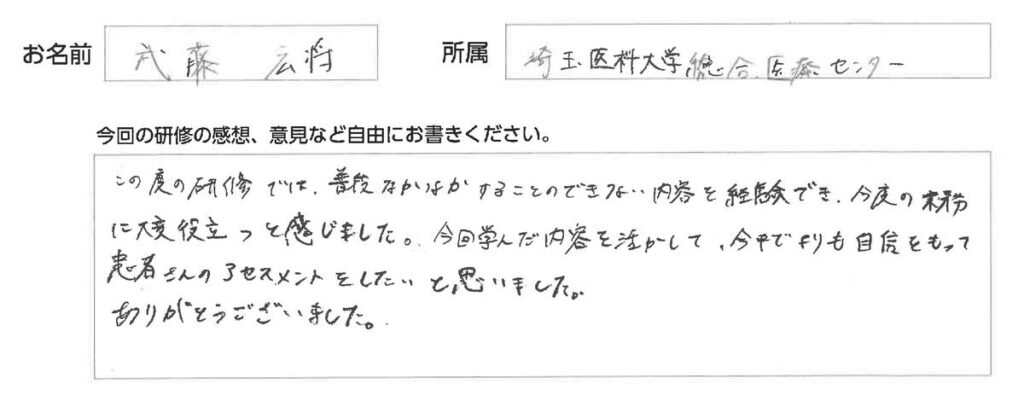 お名前 武藤 広将 所属 埼玉医科大学総合医療センター
今回の研修の感想、意見など自由にお書きください。
この度の研修では、普段なかなかすることのできない内容を経験でき、今度の業務
に大変役立つと感じました。今回学んだ内容を活かして、今までよりも自信をもって
患者さんのアセスメントをしたいと思いました。
ありがとうございました。